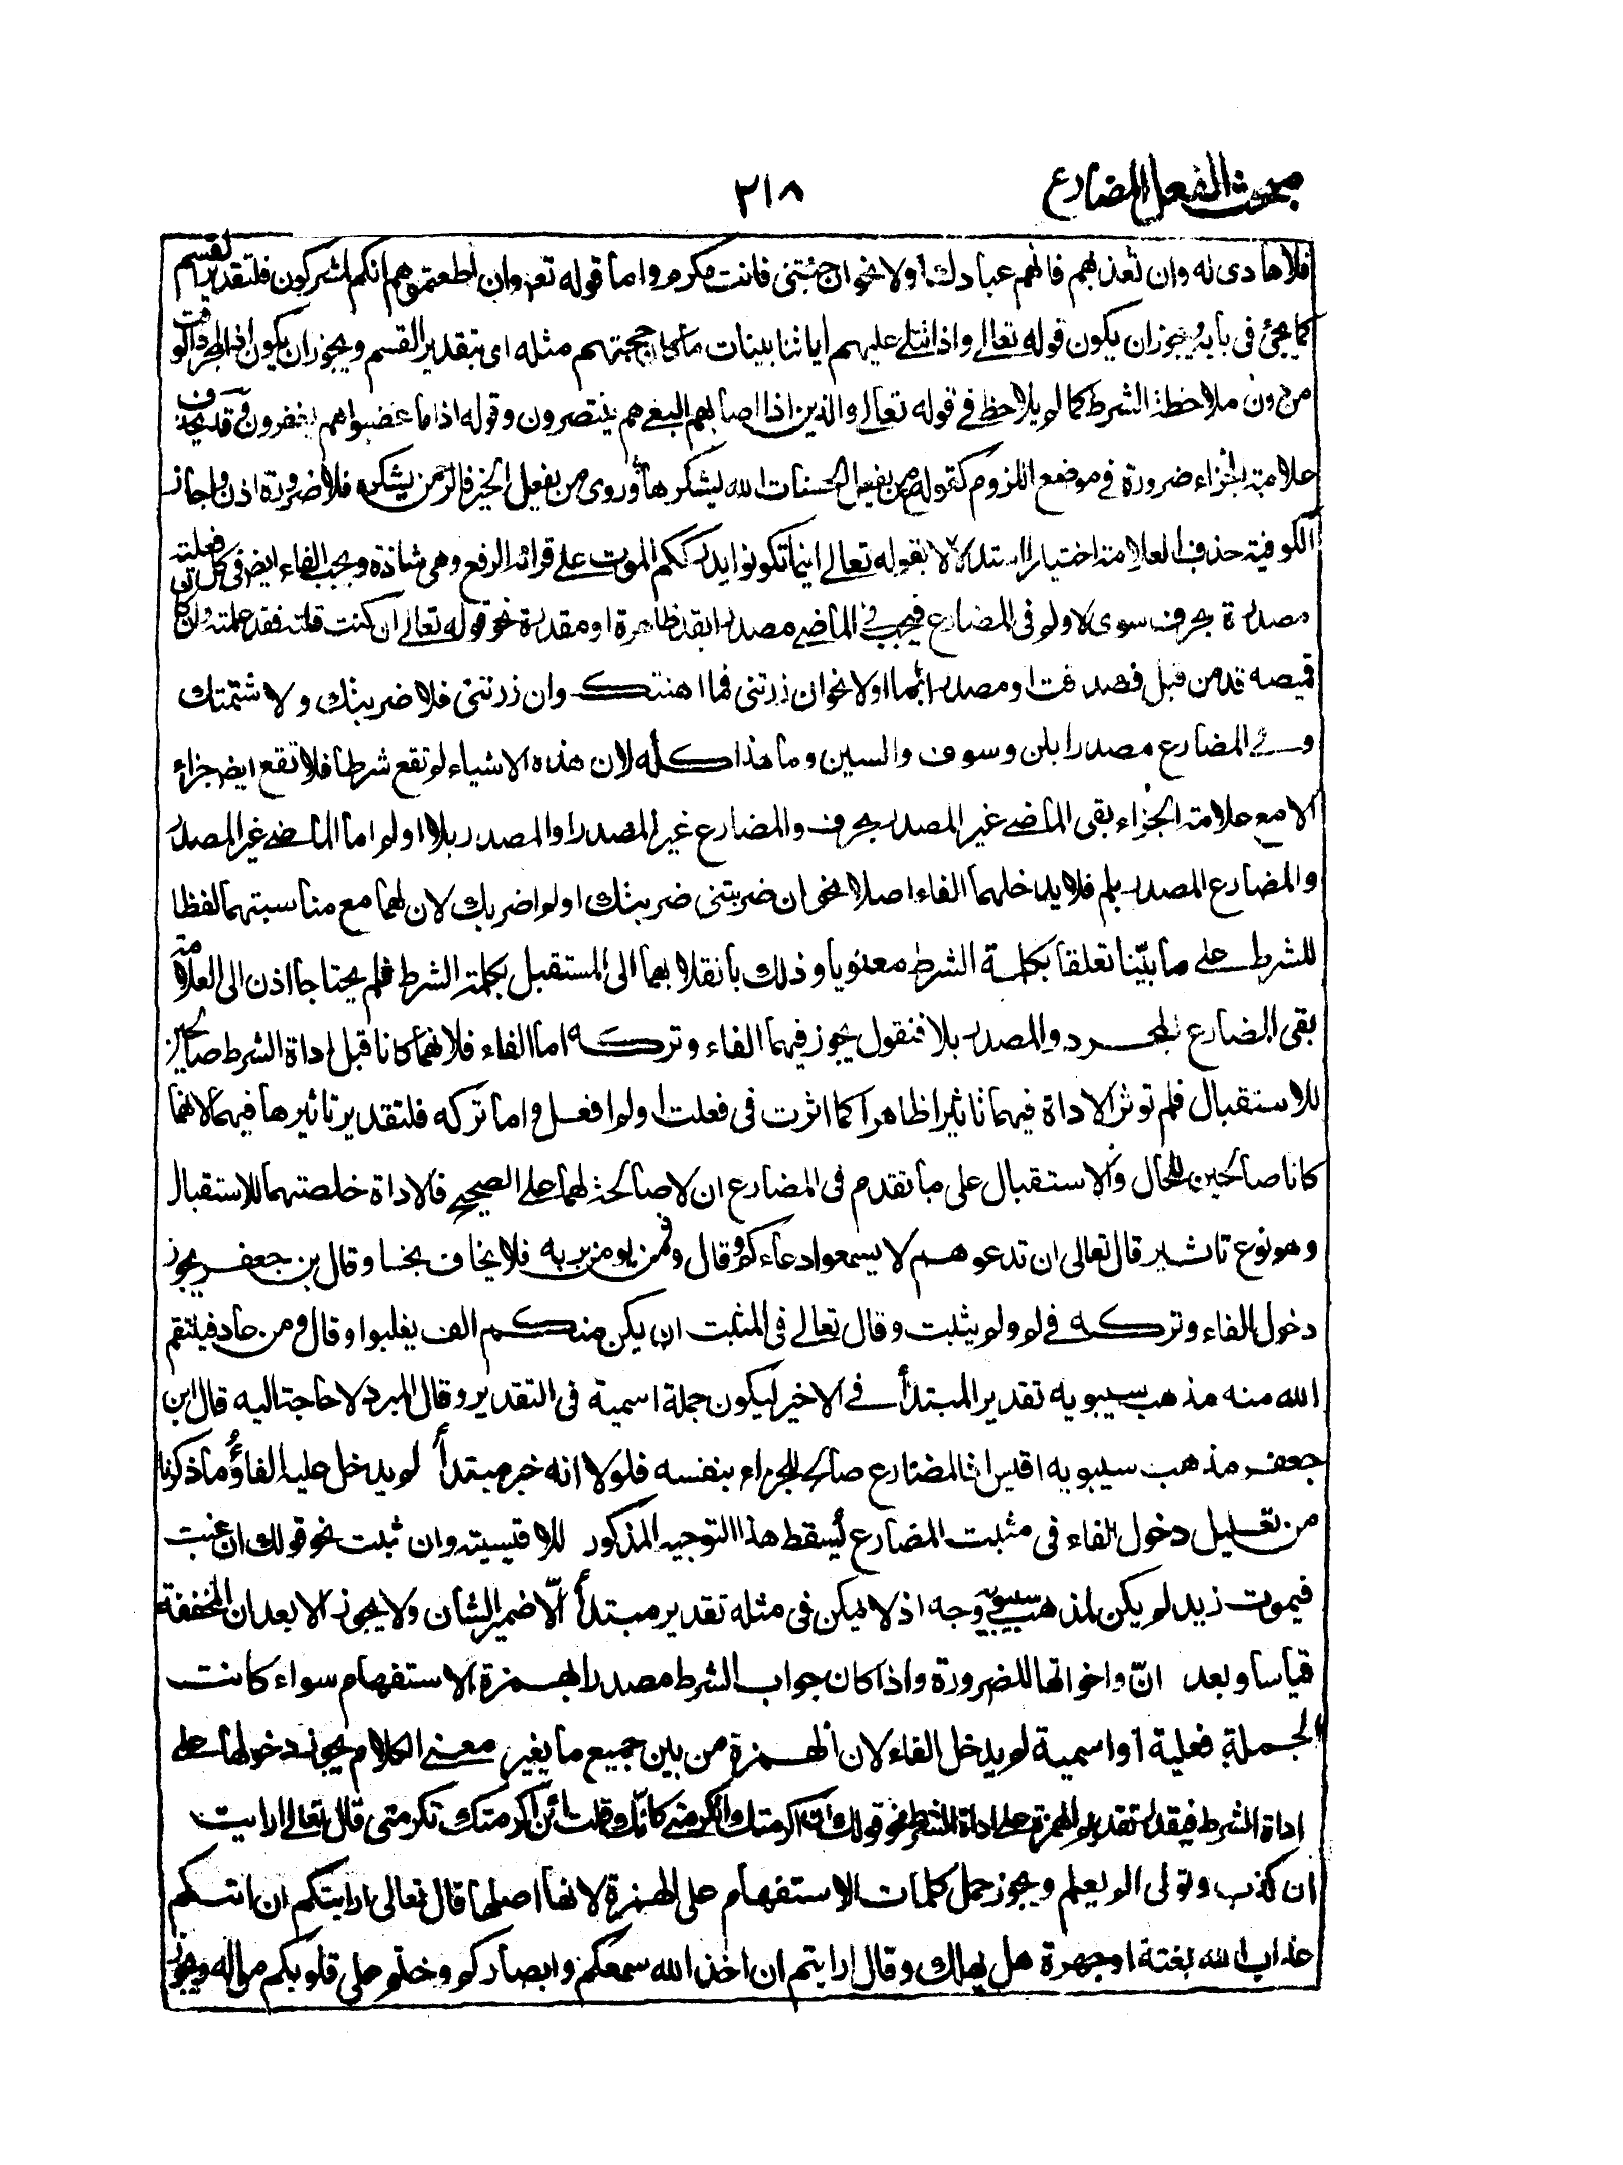 مبحث الفعل المضارع
٢١٨
فلا هادى له وان تعذبهم فانهم عبادك اولا نحو ان جئتنى فانت مكرم واما قوله تعر وان اطعتموهم انكم لمشركون فلتقدير القسم
كما يجئ فى بابه ويجوز ان يكون قوله تعالى واذا تتلى عليهم اياتنا بينات ما كان حجتهم مثله اى بتقدير القسم ويجوز ان يكون اذا لمجرد الوقت
من دون ملاحظة الشرط كما لم يلاحظ فى قوله تعالى والذين اذا اصابهم البغى هم ينتصرون وقوله اذا ما غضبوا هم يغفرون وقد يحذف
علامة الجزاء ضرورة فى موضع اللزوم كقوله ع من يفعل الحسنات الله يشكرها وروى من يفعل الخير فالرحمن يشكره فلا ضرورة اذن واجاز
الكوفية حذف العلامة اختيارا استدلالا بقوله تعالى اينما تكونوا يدرككم الموت على قرائة الرفع وهى شاذة ويجب الفاء ايض فى كل فعلية
مصدرة بحرف سوى لا ولم فى المضارع فيجب فى الماضى مصدرا بقد ظاهرة او مقدرة نحو قوله تعالى ان كنت قلته فقد علمته وان كان
قميصه قد من قبل فصدقت او مصدرا بما او لا نحو ان زرتنى فما اهنتك وان زرتنى فلا ضربتك ولا شتمتك
وفى المضارع مصدرا بلن وسوف والسين وما هذا كله لان هذه الاشياء لم تقع شرطا فلا تقع ايض جزاء
الا مع علامة الجزاء بقى الماضى غير المصدر بحرف والمضارع غير المصدر او المصدر بلا او لم اما الماضى غير المصدر
والمضارع المصدر بلم فلا يدخلهما الفاء اصلا نحو ان ضربتنى ضربتك او لم اضربك لان لهما مع مناسبتهما لفظا
للشرط على ما بيّنا تعلقا بكلمة الشرط معنويا وذلك بانقلابهما الى المستقبل بكلمة الشرط فلم يحتاجا اذن الى العلامة
بقى المضارع المجرد والمصدر بلا فنقول يجوز فيهما الفاء وتركه اما الفاء فلانهما كانا قبل اداة الشرط صالحين
للاستقبال فلم توثر الاداة فيهما تاثيرا ظاهرا كما اثرت فى فعلت ولم افعل واما تركه فلتقدير تاثيرها فيهما لانهما
كانا صالحين للحال والاستقبال على ما تقدم فى المضارع ان لا صالحة لهما على الصحيح فالاداة خلصتهما للاستقبال
وهو نوع تاثير قال تعالى ان تدعوهم لا يسمعوا دعاءكم وقال فمن يومن بربه فلا يخاف بخسا وقال بن جعفر يجوز
دخول الفاء وتركه فى لم ولم يثبت وقال تعالى فى المثبت ان يكن منكم الف يغلبوا وقال ومن عاد فينتقم
الله منه مذهب سيبويه تقدير المبتدأ فى الاخير ليكون جملة اسمية فى التقدير وقال المبرد لا حاجة اليه قال ابن
جعفر مذهب سيبويه اقيس اذ المضارع صالح للجزاء بنفسه فلولا انه خبر مبتدأ لم يدخل عليه الفاء وما ذكرنا
من تعليل دخول الفاء فى مثبت المضارع يسقط هذا التوجيه المذكور للاقيسية وان ثبت نحو قولك ان غبت
فيموت زيد لم يكن لمذهب سيبويه وجه اذ لا يمكن فى مثله تقدير مبتدأ الّا ضمير الشان ولا يجوز الا بعد ان المخففة
قياسا وبعد انّ واخواتها للضرورة واذا كان جواب الشرط مصدرا بهمزة الاستفهام سواء كانت
الجملة فعلية او اسمية لم يدخل الفاء لان الهمزة من بين جميع ما يغير معنى الكلام يجوز دخولها على
اداة الشرط فيقدر تقديم الهمزة على اداة الشرط نحو قولك ان اكرمتك اتكرمنى كانك قلت ائن اكرمتك تكرمنى قال تعالى ارايت
ان كذب وتولى الم يعلم ويجوز حمل كلمات الاستفهام على الهمزة لانها اصلها قال تعالى ارايتكم ان اتىكم
عذاب الله بغتة او جهرة هل يهلك وقال ارايتم ان اخذ الله سمعكم وابصاركم وختم على قلوبكم من اله ويجوز